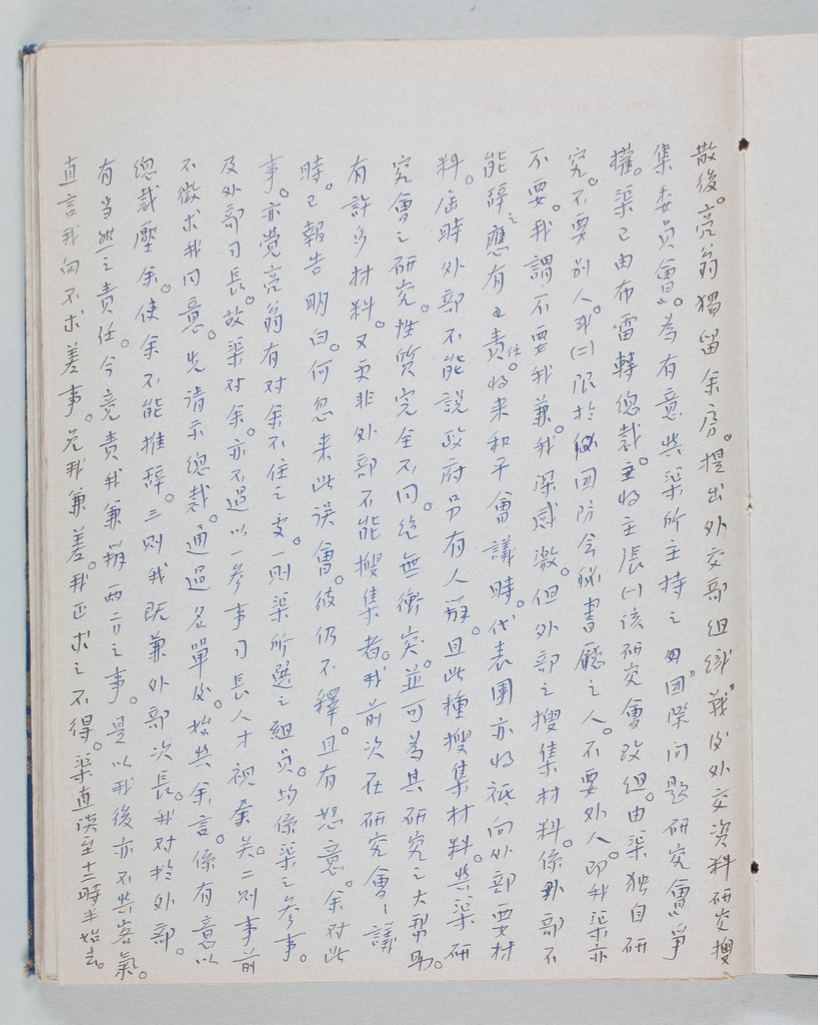 散後。亮翁獨留余房。提出外交部組織“戰後外交資料研究搜
集委員會”。為有意與渠所主持之“國際问題研究會”爭
權。渠已由布雷轉總裁。主張(一)該研究會改組。由渠独自研
究。不要別人。(二)限於國防会秘書廳之人。不要外人。即我渠亦
不要。我謂不要我兼。我深感激。但外部之搜集材料。係外部不
能辞之應有之責任。將来和平會議時。代表團亦將祇向外部要材
料。届時外部不能説政府另有人辦。且此種搜集材料。與渠研
究會之研究性質完全不同。絕無衝突。並可為其研究之大帮助。
有許多材料。又更非外部不能搜集者。我前次在研究會會議
時。已報告明白。何忽来此误會。彼仍不釋。且有怒意。余对此
事。亦覺亮翁有对余不住之处。一則渠所選之組員。均係渠之参事。
及外部司長。故渠对余。亦不過以一参事司長人才視余矣。二則事前
不徵求我同意。先請示總裁。通過名單後。始與余言。係有意以
總裁壓余。使余不能推辞。三則我既兼外部次長。我对於外部。
有當然之責任。今竟責我兼辦两方之事。是以我後亦不與客氣。
直言我向不求差事。免我兼差。我正求之不得。渠直谈至十二時半始去。